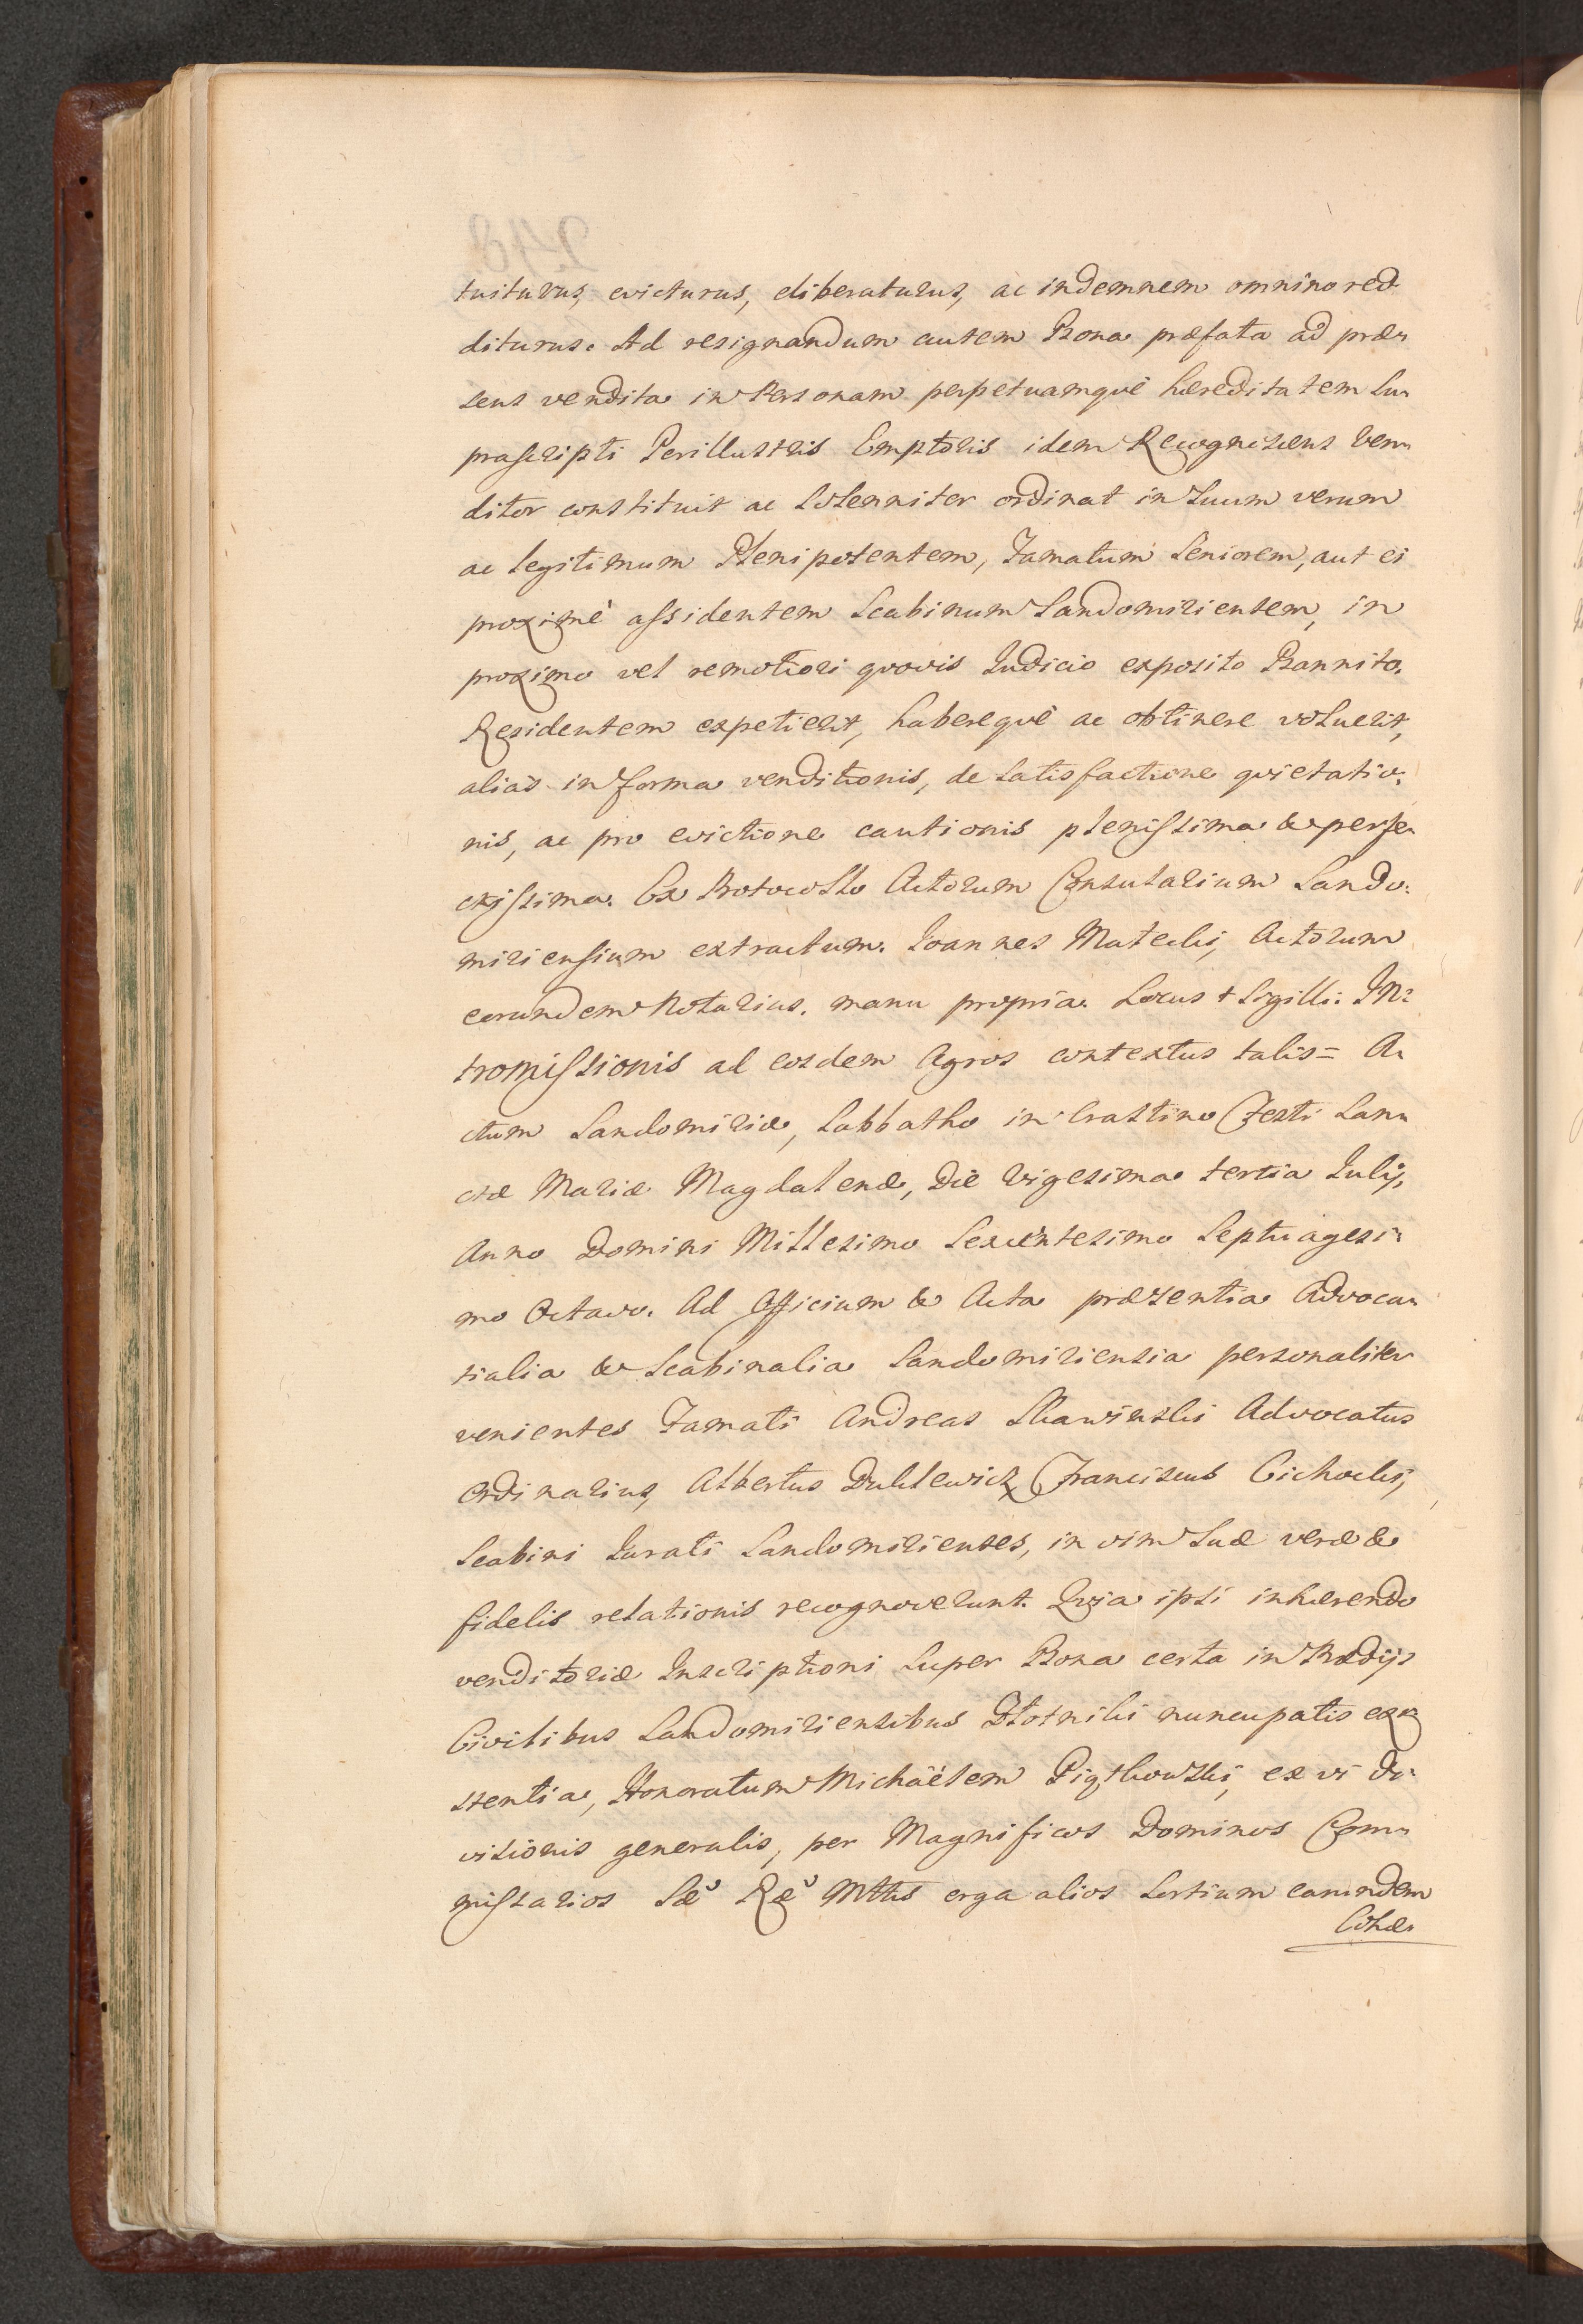 tuiturus, evicturus, eliberaturus, ac indemnem omnino red-
diturus. Ad resignandum autem Bona præfata ad præ-
sens vendita in Personam perpetuamquè hæreditatem su-
prascripti Perillustris Emptoris idem Recognoscens Ven-
ditor constituit ac solenniter ordinat in suum verum
ac legitimum Plenipotentem, Famatum Seniorem, aut ei
proximè assidentem Scabinum Sandomiriensem, in
proximo vel remotiori quovis Iudicio exposito Bannito.
Residentem expetierit, haberequè ac obtinere voluerit,
aliàs in forma venditionis, de satisfactione quietatio-
nis, ac pro evictione cautionis plenissima & perfe-
ctissima. Ex Protocollo Actorum Consularium Sando-
miriensium extractum. Ioannes Matecki, Actorum
eorundem Notarius. manu propria. Locus + Sigilli. In-
tromissionis ad eosdem Agros contextus talis = A-
ctum Sandomiriæ, Sabbatho in Crastino Festi San-
ctæ Mariæ Magdalenæ, Die Vigesima tertia Iulij,
Anno Domini Millesimo Sexcentesimo Septuagesi-
mo Octavo. Ad Officium & Acta præsentia Advoca-
tialia & Scabinalia Sandomiriensia personaliter
venientes Famati Andreas Skawinski Advocatus
Ordinarius, Albertus Duklewicz, Franciscus Cichocki,
Scabini Iurati Sandomirienses, in vim suæ veræ &
fidelis relationis recognoverunt. Quia ipsi inhærendo
venditoriæ Inscriptioni super Bona certa in Prædijs
Civilibus Sandomiriensibus Płotniki nuncupatis exi-
stentia, Honoratum Michaëlem Piątkowski, ex vi di-
visionis generalis, per Magnificos Dominos Com-
missarios Sæ Ræ Mttis erga alios sortium earundem
Cohæ-